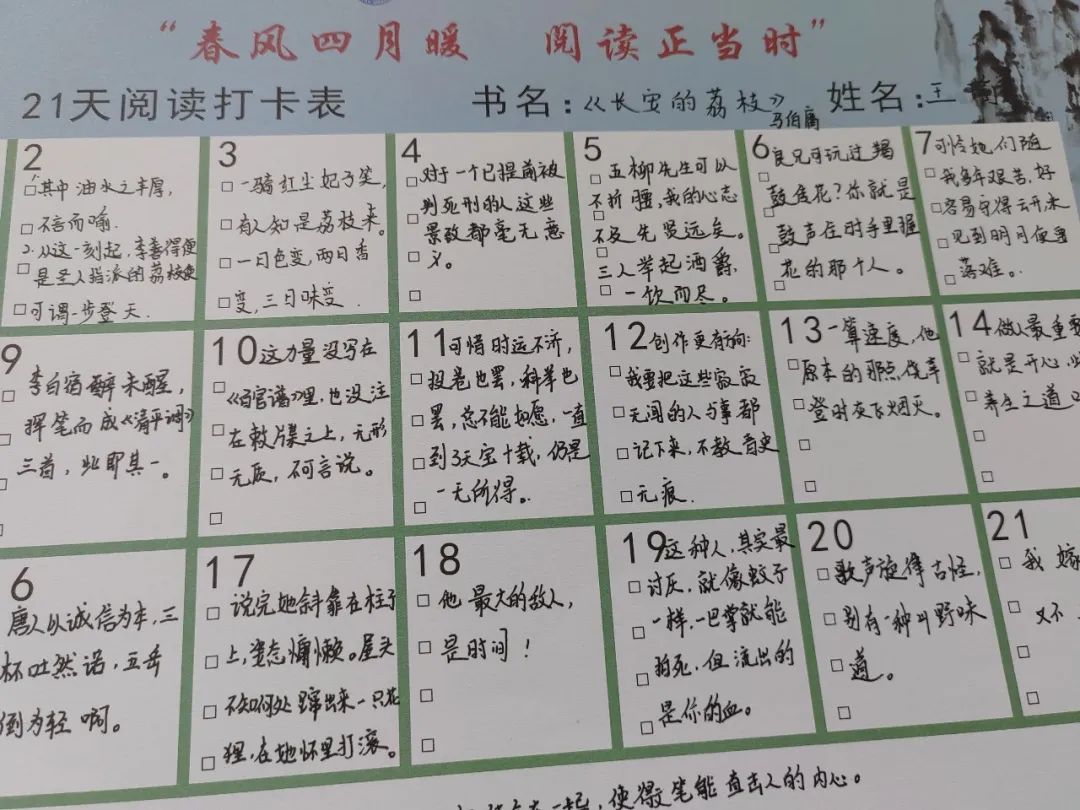 “春风四月暖 阅读正当时”
21天阅读打卡表 书名:《长安的荔枝》 姓名:王
马伯庸
2
其中油水之丰厚,
不言而喻.
2.从这一刻起,李善得便
是圣人指派的荔枝使
可谓一步登天.
3
一骑红尘妃子笑,
有人知是荔枝来.
一日色变,两日香
变,三日味变.
4
对于一个已提前被
判死刑的人这些
景致都毫无意
义。
5
五柳先生可以
不折腰,我的心志
不及先贤远矣。
三人举起酒爵,
一饮而尽。
6
良兄可玩过羯
鼓传花?你就是
鼓声住时手里握
花的那个人。
7
可怜她们随
我多年艰苦,好
容易守得云开,未
见到明月便要
落难。
9
李白宿醉未醒,
挥笔而成《清平调》
三首,此即其一。
10
这力量没写在
《百官谱》里,也没注
在敕牒之上,无形
无质,不可言说。
11
可惜时运不济,
投卷也罢,科举也
罢,总不能如愿,一直
到了天宝十载,仍是
一无所得。
12
创作更有动向:
我要把这些寂寂
无闻的人与事都
记下来,不教青史
无痕.
13
一算速度,他
原本的那点侥幸
登时灰飞烟灭。
14
做人最重要
就是开心,此
养生之道
6
唐人以诚信为本,三
杯吐然诺,五岳
倒为轻啊。
17
说完她斜靠在柱子
上,姿态慵懒。屋头
不知何处蹿出来一只花
狸,在她怀里打滚。
18
他最大的敌人,
是时间!
19
这种人,其实最
讨厌,就像蚊子
一样,一巴掌就能
拍死,但流出的
是你的血。
20
歌声旋律古怪,
别有一种叫野味
道。
21
我嫁
又不
一起,使得笔能直击人的内心。